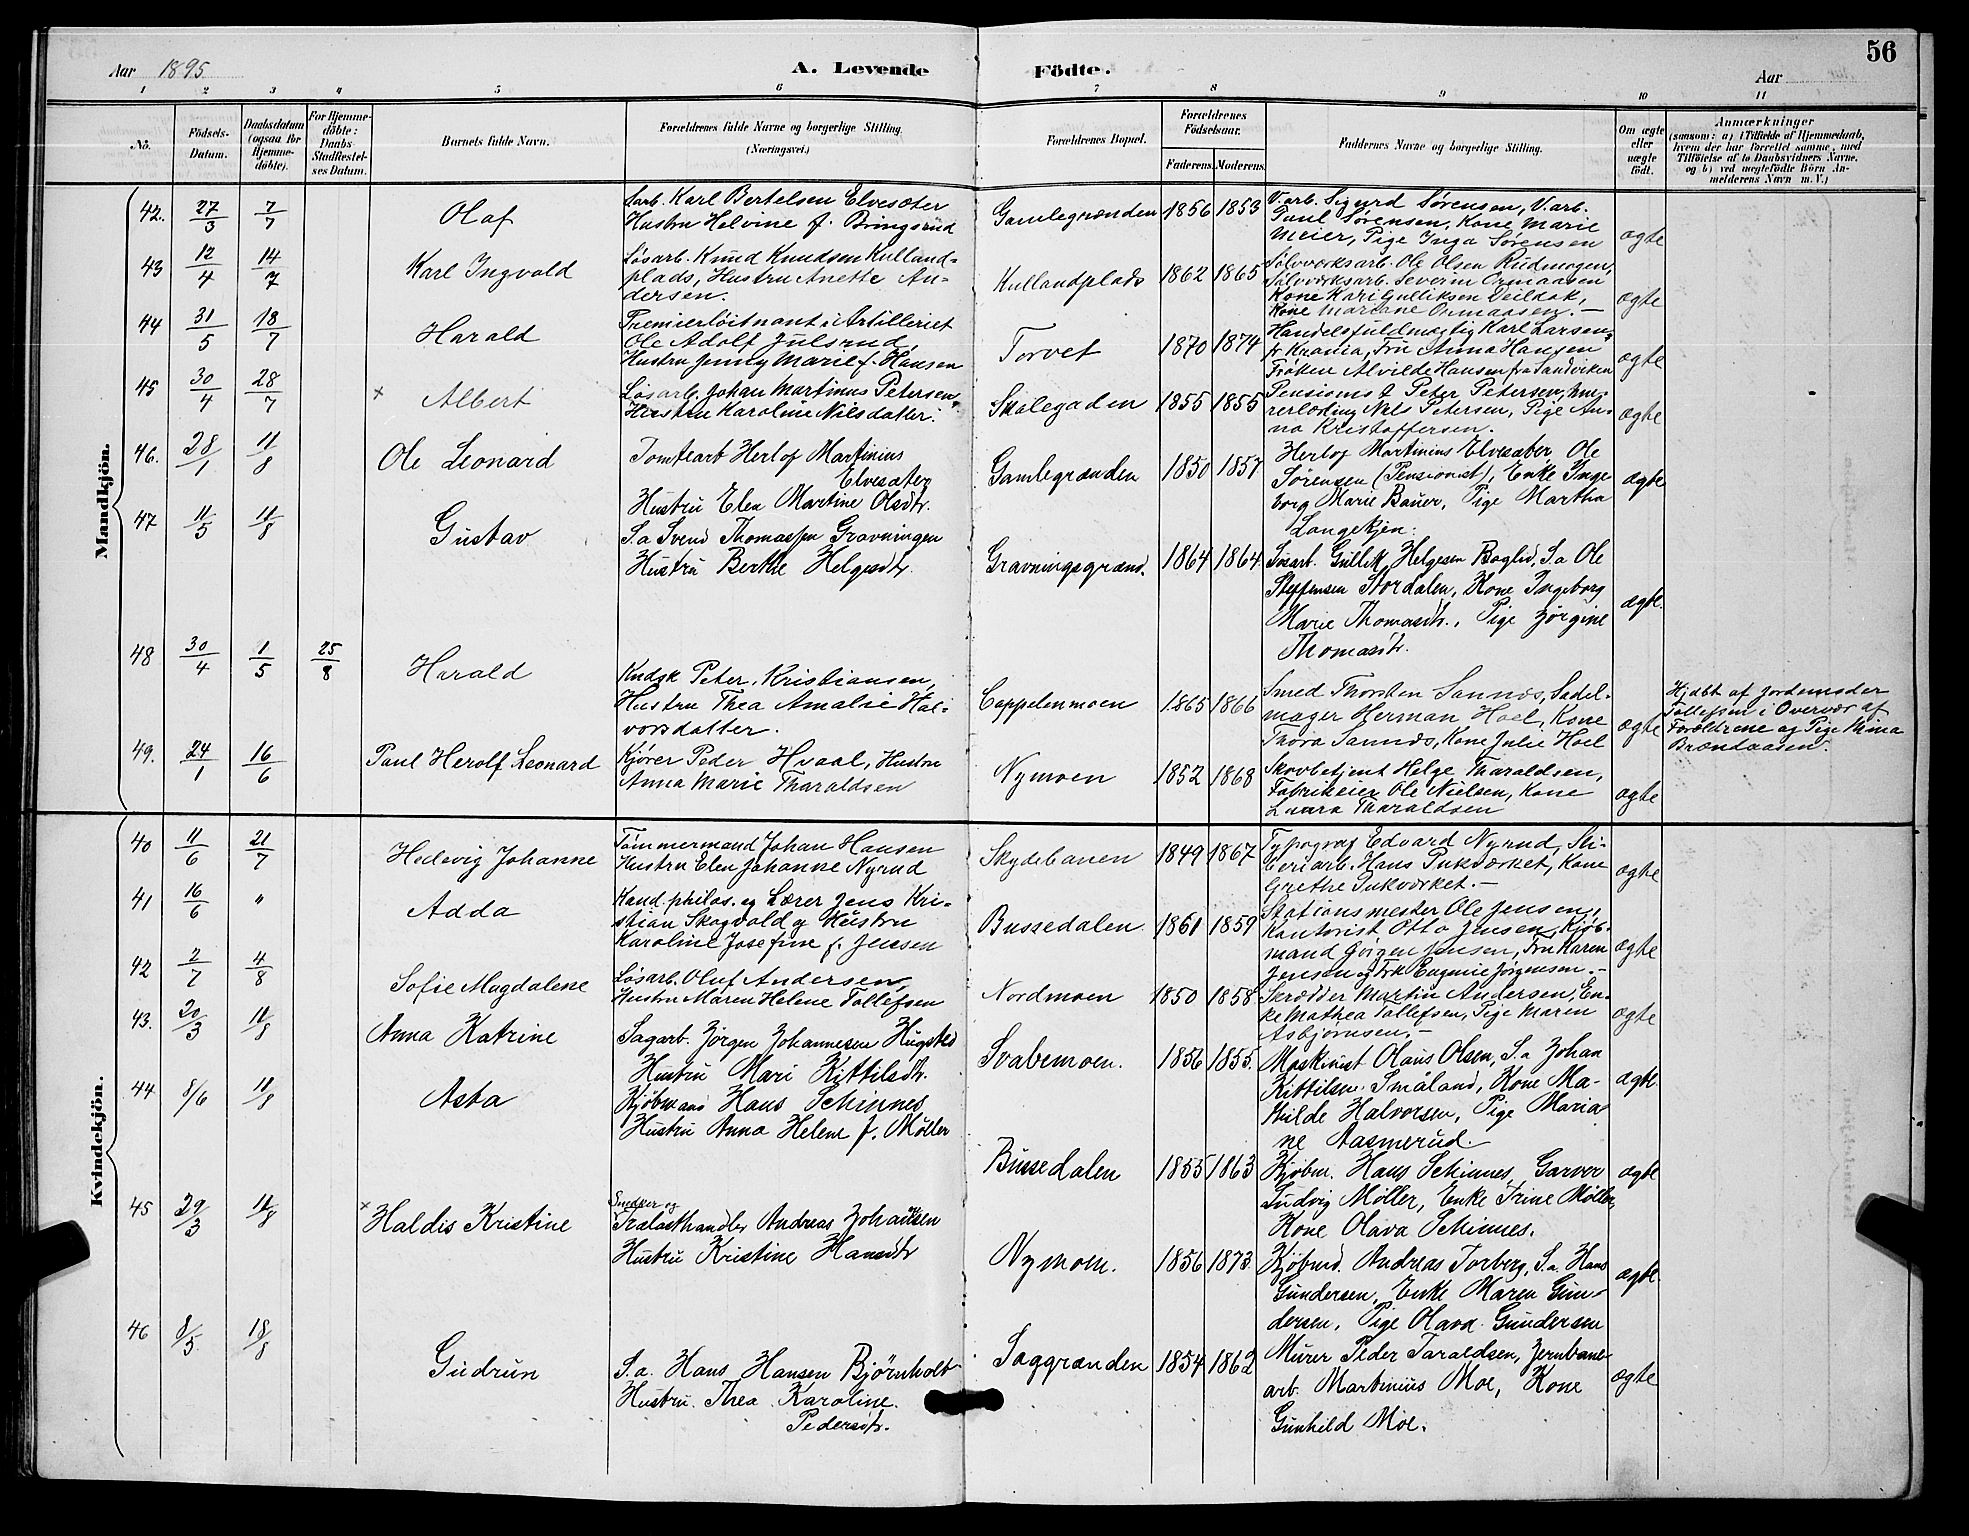 56
Aar 1895
A. Levende Födte.
Aar
1 2 3 4 5 6 7 8 9 10 11
No.
Födsels-Datum.
Daabsdatum (ogsaa for Hjemme-döbte).
For Hjemme-döbte: Daabs Stadfæstel-ses Datum.
Barnets fulde Navn.
Forældrenes fulde Navne og borgerlige Stilling. (Næringsvei.)
Forældrenes Bopæl.
Forældrenes Födselsaar.
Faderens. Moderens.
Faddernes Navne og borgerlige Stilling.
Om ægte eller uægte födt.
Anmærkninger
(saasom: a) i Tilfælde af Hjemmedaab,
hvem der har forrettet samme, med
Tilföielse af to Daabsvidners Navne,
og b) ved uægtefödte Börn An-
melderens Navn m. V.)
Mandkjön.
42. 27/3 7/7 Olaf
Sarb. Karl Bertelsen Elvesæter
Hustru Helvine f. Bringsrud
Gamlegrænden 1856 1853
V.arb. Sigurd Sørensen, V.arb.
Paul Sørensen, Kone Marie
Meier, Pige Inga Sørensen
ægte
43 12/4 14/7 Karl Ingvald
Løsarb. Knud Knudsen Kulland=
plads, Hustru Anette An-
dersen.
Kullandplads 1862 1865
Sølvværksarb. Ole Olsen Rudmogen,
Sølvværksarb. Severin Ormaasen
Kone Kari Gulliksen Deildok,
Kone Mariane Ormaasen.-
ægte
44 31/5 18/7 Harald
Premierløitnant i Artilleriet
Ole Adolf Julsrud,
Hustru Jenny Marie f. Hansen
Torvet 1870 1874
Handelsfuldmægtig Karl Larsen
fr Krania, Fru Anna Hansen
Frøken Alvilde Hansen fra Sandviken
ægte
45 30/4 28/7 × Albert
Løsarb. Johan Martinus Petersen
Hustru Karoline Nilsdatter.
Skolegaden 1855 1855
Pensionist Peter Petersen, Mu-
rerlærling Nils Petersen, Pige An-
na Kristoffersen.
ægte
46. 28/1 11/8 Ole Leonard
Tomtearb Herlof Martinius
Elvesæter
Hustru Elen Martine Olsdtr.
Gamlegrænden 1850 1857
Herlof Martinius Elvesæter, Ole
Sørensen (Pensionist), Enke Inge
borg Marie Bauer, Pige Martha
Langekjen.
ægte
47 11/5 11/8 Gustav
S.a Svend Thomassen Gravningen
Hustru Berthe Helgesdtr.
Gravningsgrænd. 1864 1864
Løsarb. Gullik Helgesen Baglid, S.a Ole
Steffensen Stordalen, Kone Ingeborg
Marie Thomasdtr., Pige Jørgine
Thomasdtr.
ægte.
48 30/4 1/5 25/8 Harald
Kudsk Peter Kristiansen,
Hustru Thea Amalie Hal-
vorsdatter.
Cappelenmoen 1865 1866
Smed Thorsten Sannes, Sadel-
mager Herman Hoel, Kone
Thora Sannes, Kone Julie Hoel
ægte
Hjdbt af Jordemoder
Tollefsen i Overvær af
Forældrene og Pige Mina
Brændaasen.
49. 24/1 16/6 Paul Herolf Leonard
Kjører Peder Hvaal, Hustru
Anna Marie Tharaldsen
Nymoen 1852 1868
Skovbetjent Helge Tharaldsen,
Fabrikeier Ole Nielsen, Kone
Laura Tharaldsen
ægte
Kvindekjön.
40 11/6 21/7 Hedevig Johanne
Tømmermand Johan Hansen
Hustru Elen Johanne Nyrud
Skydebanen 1849 1867
Typograf Edvard Nyrud, Sli-
beriarb. Hans Pukværket, Kone
Grethe Pukværket.-
ægte
41 16/6 " Adda
Kand. philos. og Lærer Jens Kri-
stian Skogvold og Hustru
Karoline Josefine f. Jensen
Bussedalen 1861 1859
Stationsmester Ole Jensen,
Kantorist Otto Jensen, Kjøb-
mand Jörgen Jensen, Fru Karen
Jensen og Frk Eugenie Jörgensen.-
ægte
42 2/7 4/8 Sofie Magdalene
Løsarb. Oluf Andersen,
Hustru Maren Helene Tollefsen
Nordmoen 1850 1858
Skrædder Martin Andersen, En-
ke Mathea Tollefsen, Pige Maren
Asbjørnsen.-
ægte
43. 20/3 11/8 Anna Katrine
Sagarb. Jørgen Johannesen Hugsted
Hustru Mari Kittilsdtr.
Svabemoen. 1856 1855.
Maskinist Olaus Olsen, S.a Johan
Kittilsen Småland, Kone Ma-
thilde Halvorsen, Pige Maria
ne Aasmerud.
ægte.
44 8/6 11/8 Asta
Kjøbmand Hans Schinnes
Hustru Anna Helene f. Møller
Bussedalen 1855 1863
Kjøbm. Hans Schinnes, Garver
Ludvig Møller, Enke Trine Møller,
Kone Olava Schinnes.
ægte
45 29/3 11/8 × Haldis Kristine
Snedker og
Trælasthandler Andreas Johansen
Hustru Kristine Hansdtr
Nymoen. 1856 1873.
Kjøbmd. Andreas Torberg, S.a. Hans
Gundersen, Enke Maren Gun-
dersen, Pige Olava Gundersen
ægte.
46 8/5 18/8 Gudrun
S.a. Hans Hansen Bjørnholt
Hustru Thea Karoline
Pedersdtr.
Saggrænden 1854 1862
Murer Peder Taraldsen, Jernbane
arb. Martinius Moe, Kone
Gunhild Moe.
ægte